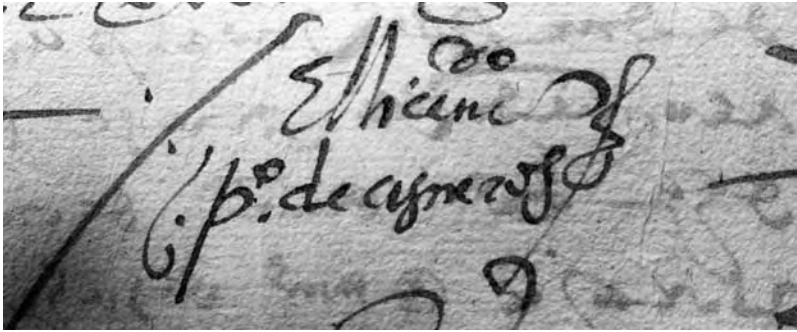 El licen.do
p.º de cysneros